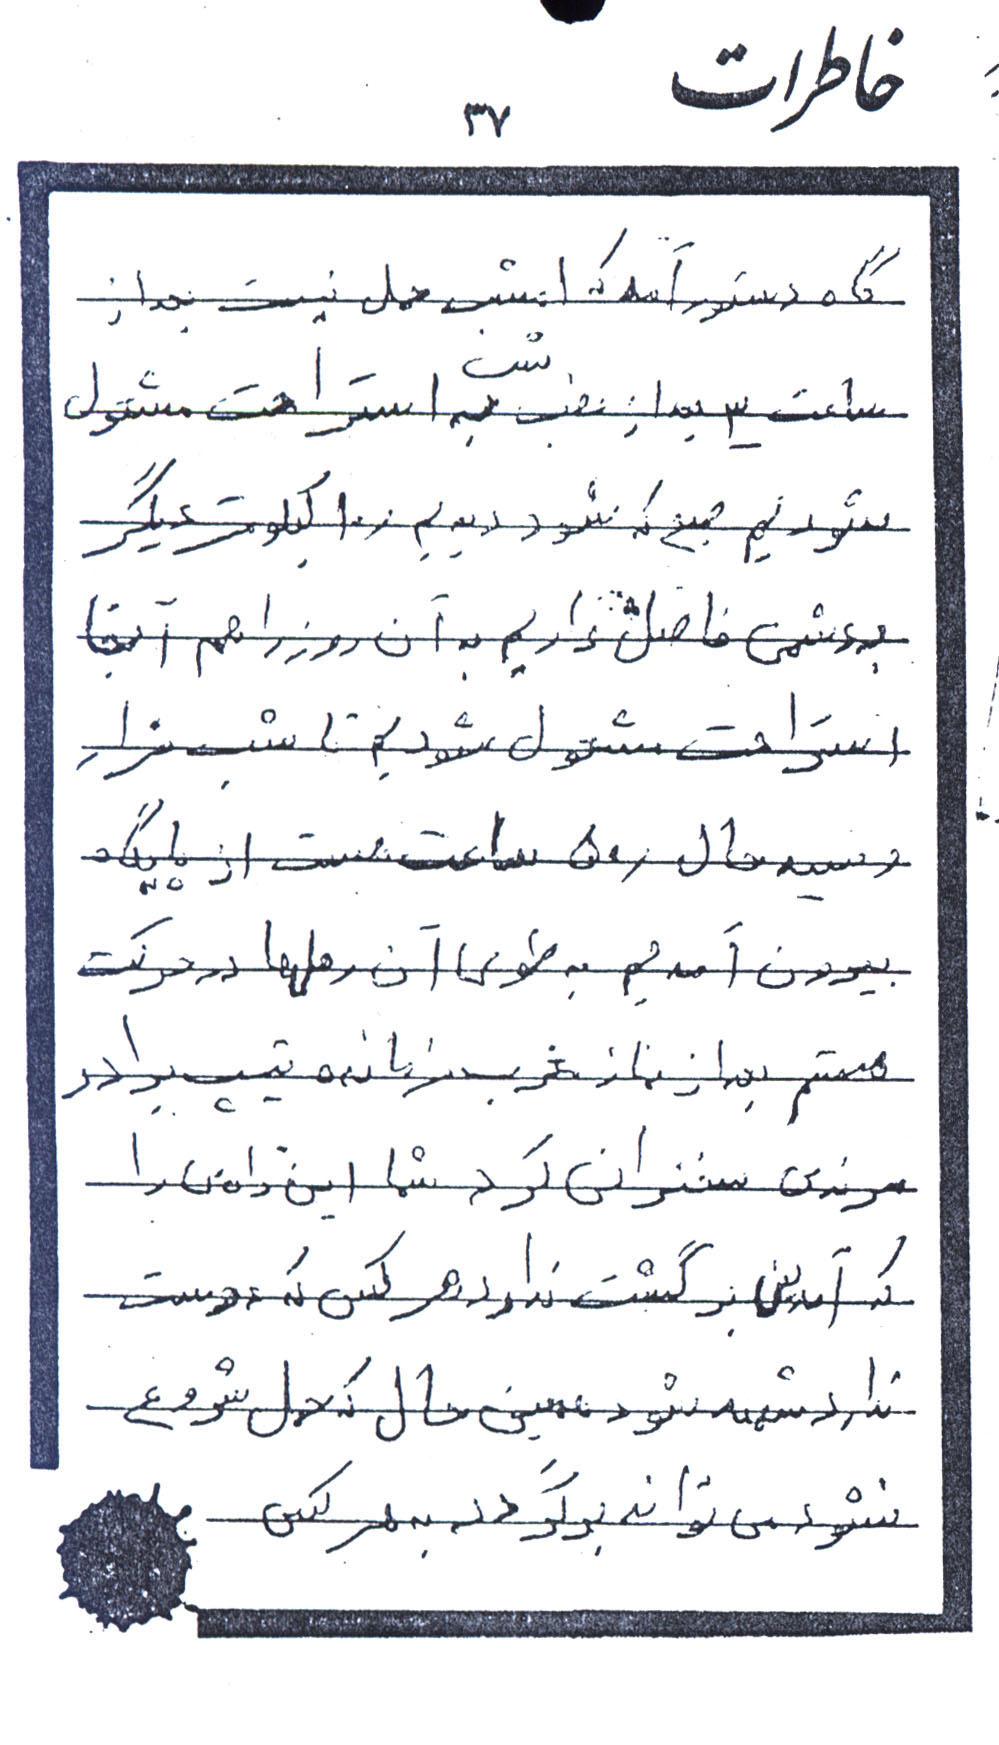 خاطرات
۳۷
گاه دستور آمد که امشب حمل نیست بعد از
ساعت ۳ بعد از نصب شب به استراحت مشغول
شودیم صبح که شود دیدیم کیلومتر دیگر
به دشمن فاصل داریم به آن روز را هم آنجا
استراحت مشغول شودیم تا شب فرار
رسید حال ساعت هست از پایگاه
بیرون آمدیم به طوی آن رملها در حرکت
هستم بعد از نماز مغرب فرمانده تیپ برادر
مرندی سخنرانی کرد شما این راهی را
که آمدین برگشت ندارد هر کس که دوست
ندارد شهید شود همین حال که حمل شروع
نشود می تواند برگردد به هر کس